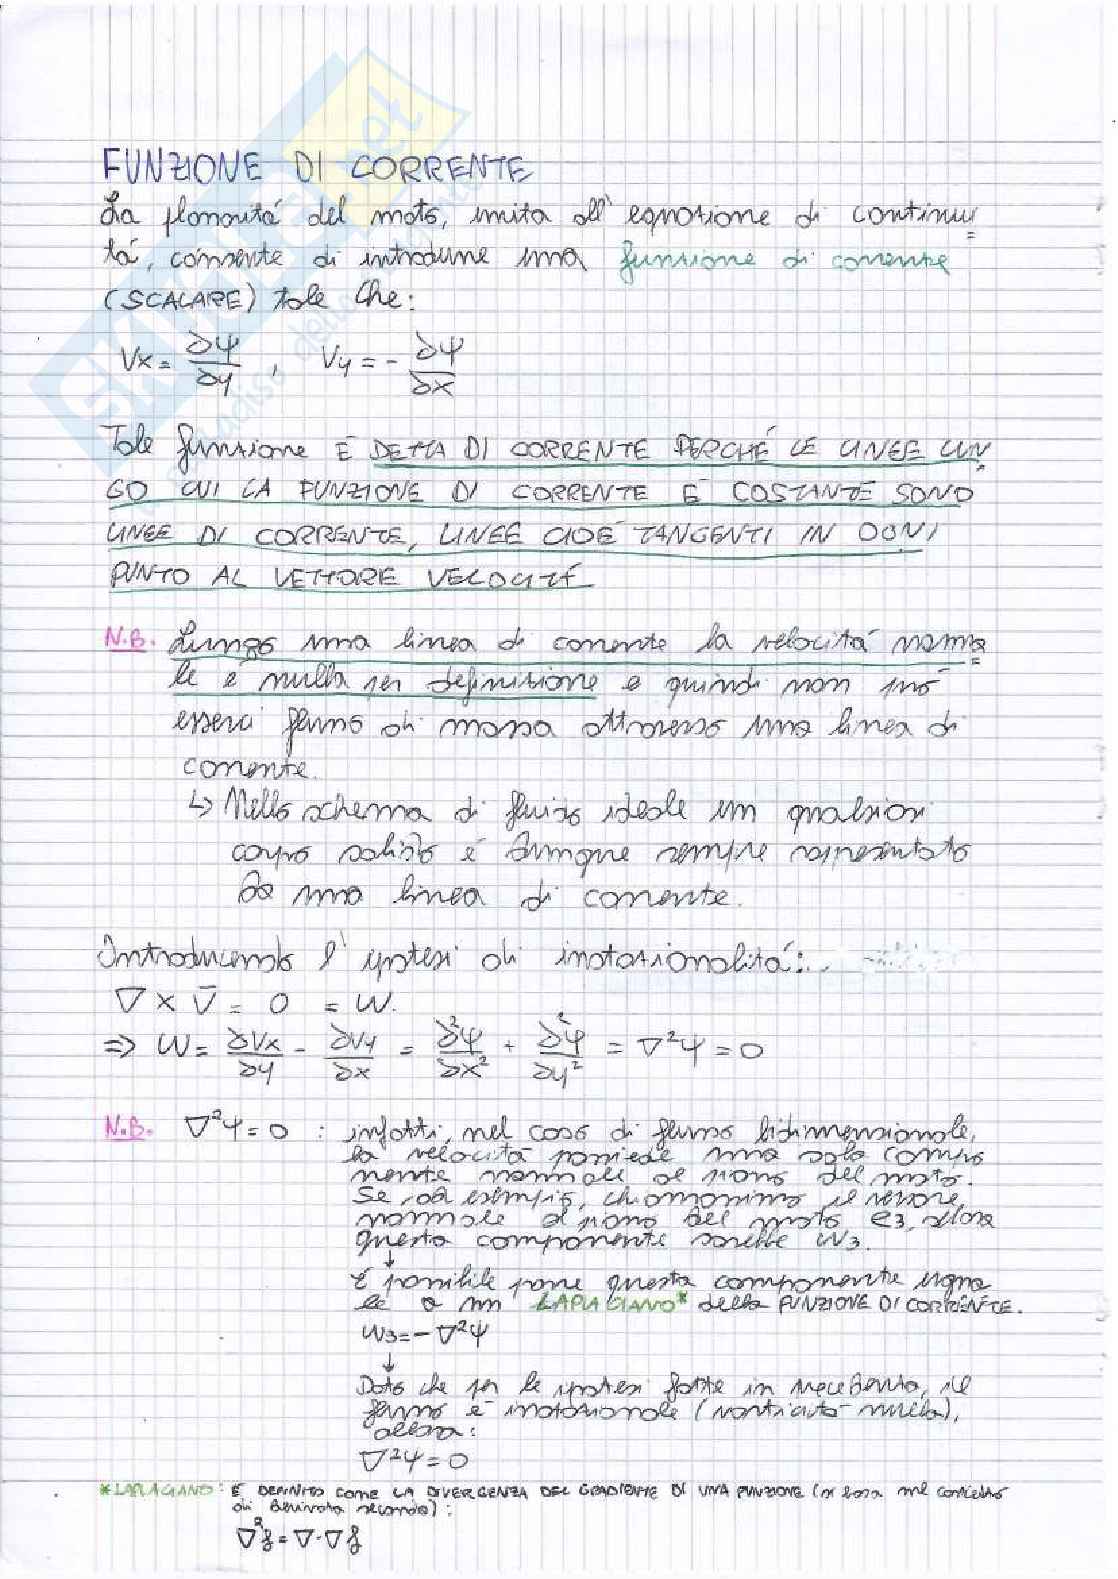 FUNZIONE DI CORRENTE
La planarità del moto, unita all'equazione di continui
tà, consente di introdurre una funzione di corrente
(SCALARE) tale che:
Vx = ∂ψ/∂y , Vy = - ∂ψ/∂x
Tale funzione È DETTA DI CORRENTE PERCHÉ LE LINEE LUN
GO CUI LA FUNZIONE DI CORRENTE È COSTANTE SONO
LINEE DI CORRENTE, LINEE CIOÈ TANGENTI IN OGNI
PUNTO AL VETTORE VELOCITÀ
N.B. Lungo una linea di corrente la velocità norma
le è nulla per definizione e quindi non può
esserci flusso di massa attraverso una linea di
corrente.
↳ Nello schema di fluido ideale un qualsiasi
corpo solido è dunque sempre rappresentato
da una linea di corrente.
Introducendo l'ipotesi di irrotazionalità:
∇ × V̄ = 0 = W.
=> W = ∂Vx/∂y - ∂Vy/∂x = ∂²ψ/∂x² + ∂²ψ/∂y² = ∇²ψ = 0
N.B. ∇²ψ = 0 : infatti, nel caso di flusso bidimensionale,
la velocità possiede una sola compo
nente normale al piano del moto.
Se, ad esempio, chiamiamo il versore,
normale al piano del moto e3, allora
questa componente sarebbe W3.
↓
È possibile porre questa componente ugua
le a un LAPLACIANO* della FUNZIONE DI CORRENTE.
W3 = - ∇²ψ
↓
Dato che per le ipotesi fatte in precedenza, il
flusso è irrotazionale (vorticità nulla),
allora:
∇²ψ = 0
*LAPLACIANO: È DEFINITO COME LA DIVERGENZA DEL GRADIENTE DI UNA FUNZIONE (si basa sul concetto
di derivata seconda):
∇²f = ∇·∇f
SKUOLA.net